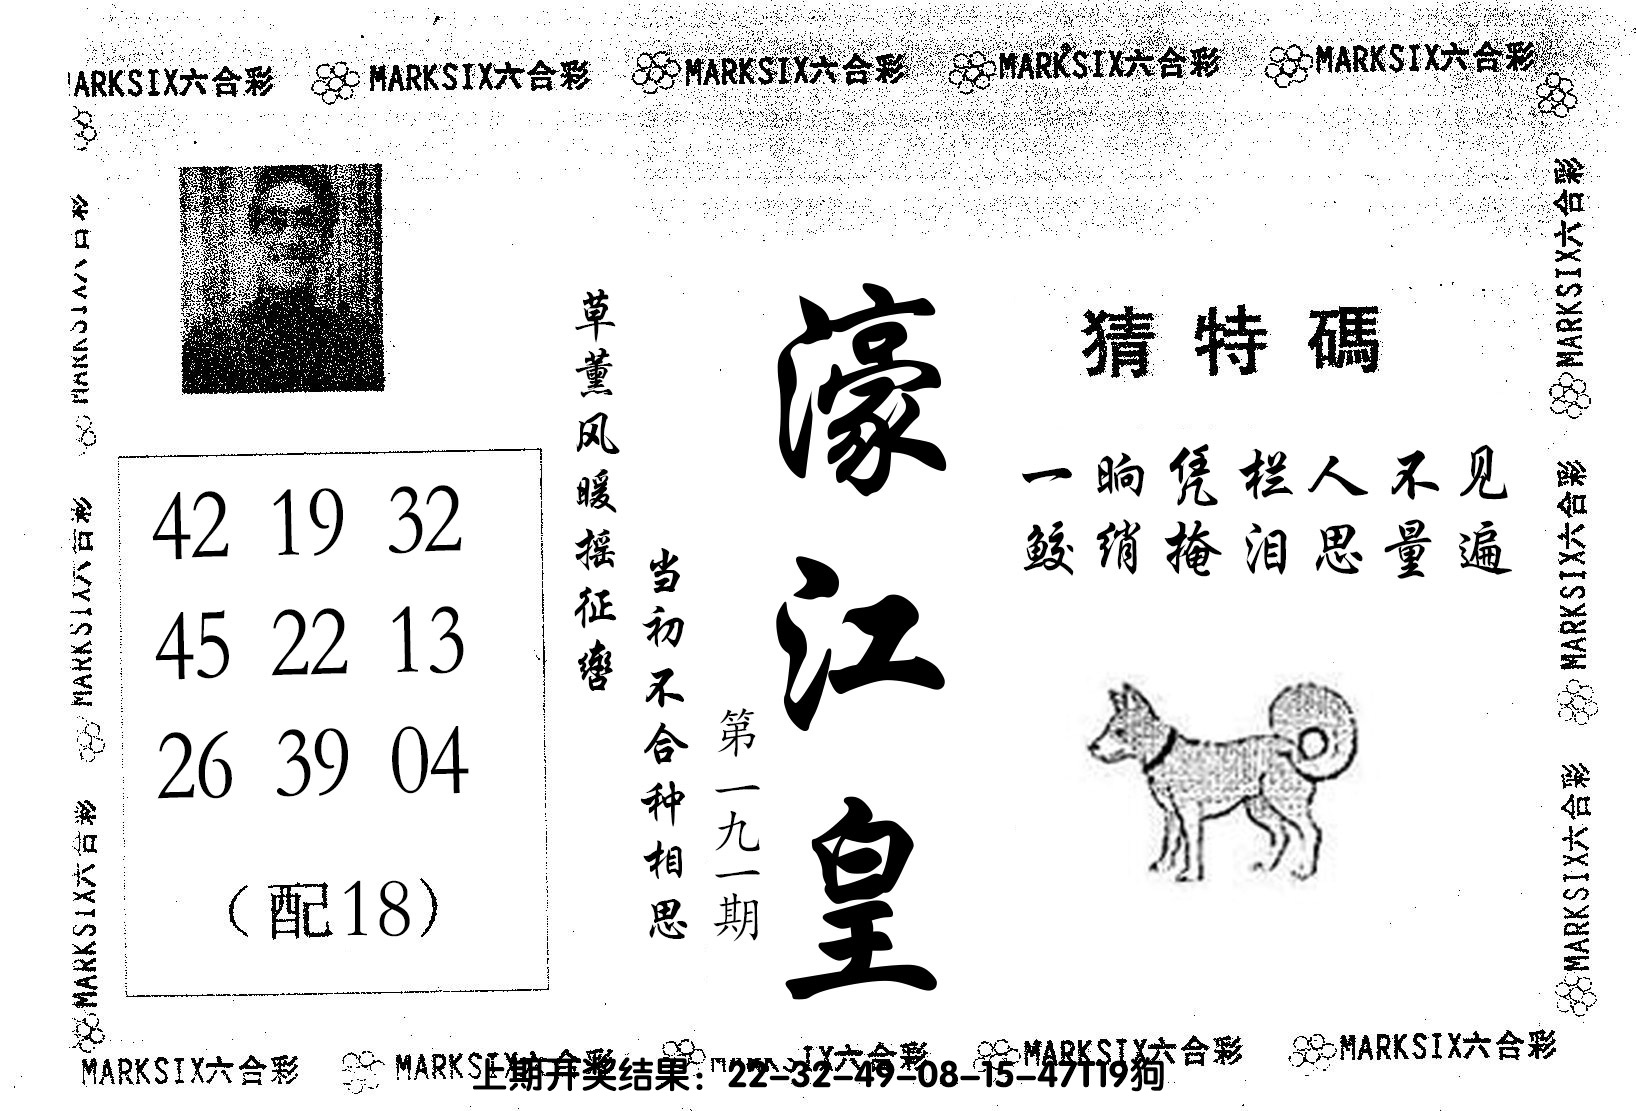 MARKSIX六合彩 MARKSIX六合彩 MARKSIX六合彩 MARKSIX六合彩 MARKSIX六合彩
猜特碼
一晌凭栏人不见
鲛绡掩泪思量遍
濠江皇
第一九一期
草薰风暖摇征辔
当初不合种相思
42 19 32
45 22 13
26 39 04
（配18）
MARKSIX六合彩
MARKSIX六合彩
MARKSIX六合彩
MARKSIX六合彩
MARKSIX六合彩
MARKSIX六合彩 MARKSIX六合彩 六合彩 MARKSIX六合彩 MARKSIX六合彩
上期开奖结果：22-32-49-08-15-47T19狗